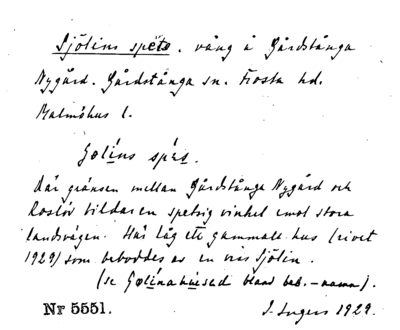 Sjölins spets. vång å Gårdstånga
Nygård. Gårdstånga sn. Frosta hd.
Malmöhus l.
Golins spés.
Där gränsen mellan Gårdstånga Nygård och
Roslöv bildar en spetsig vinkel emot stora
landsvägen. Här låg ett gammalt hus (rivet
1929) som beboddes av en viss Sjölin.
(se Golinahused bland beb.-namn).
Nr 5551. I. Ingers 1929.